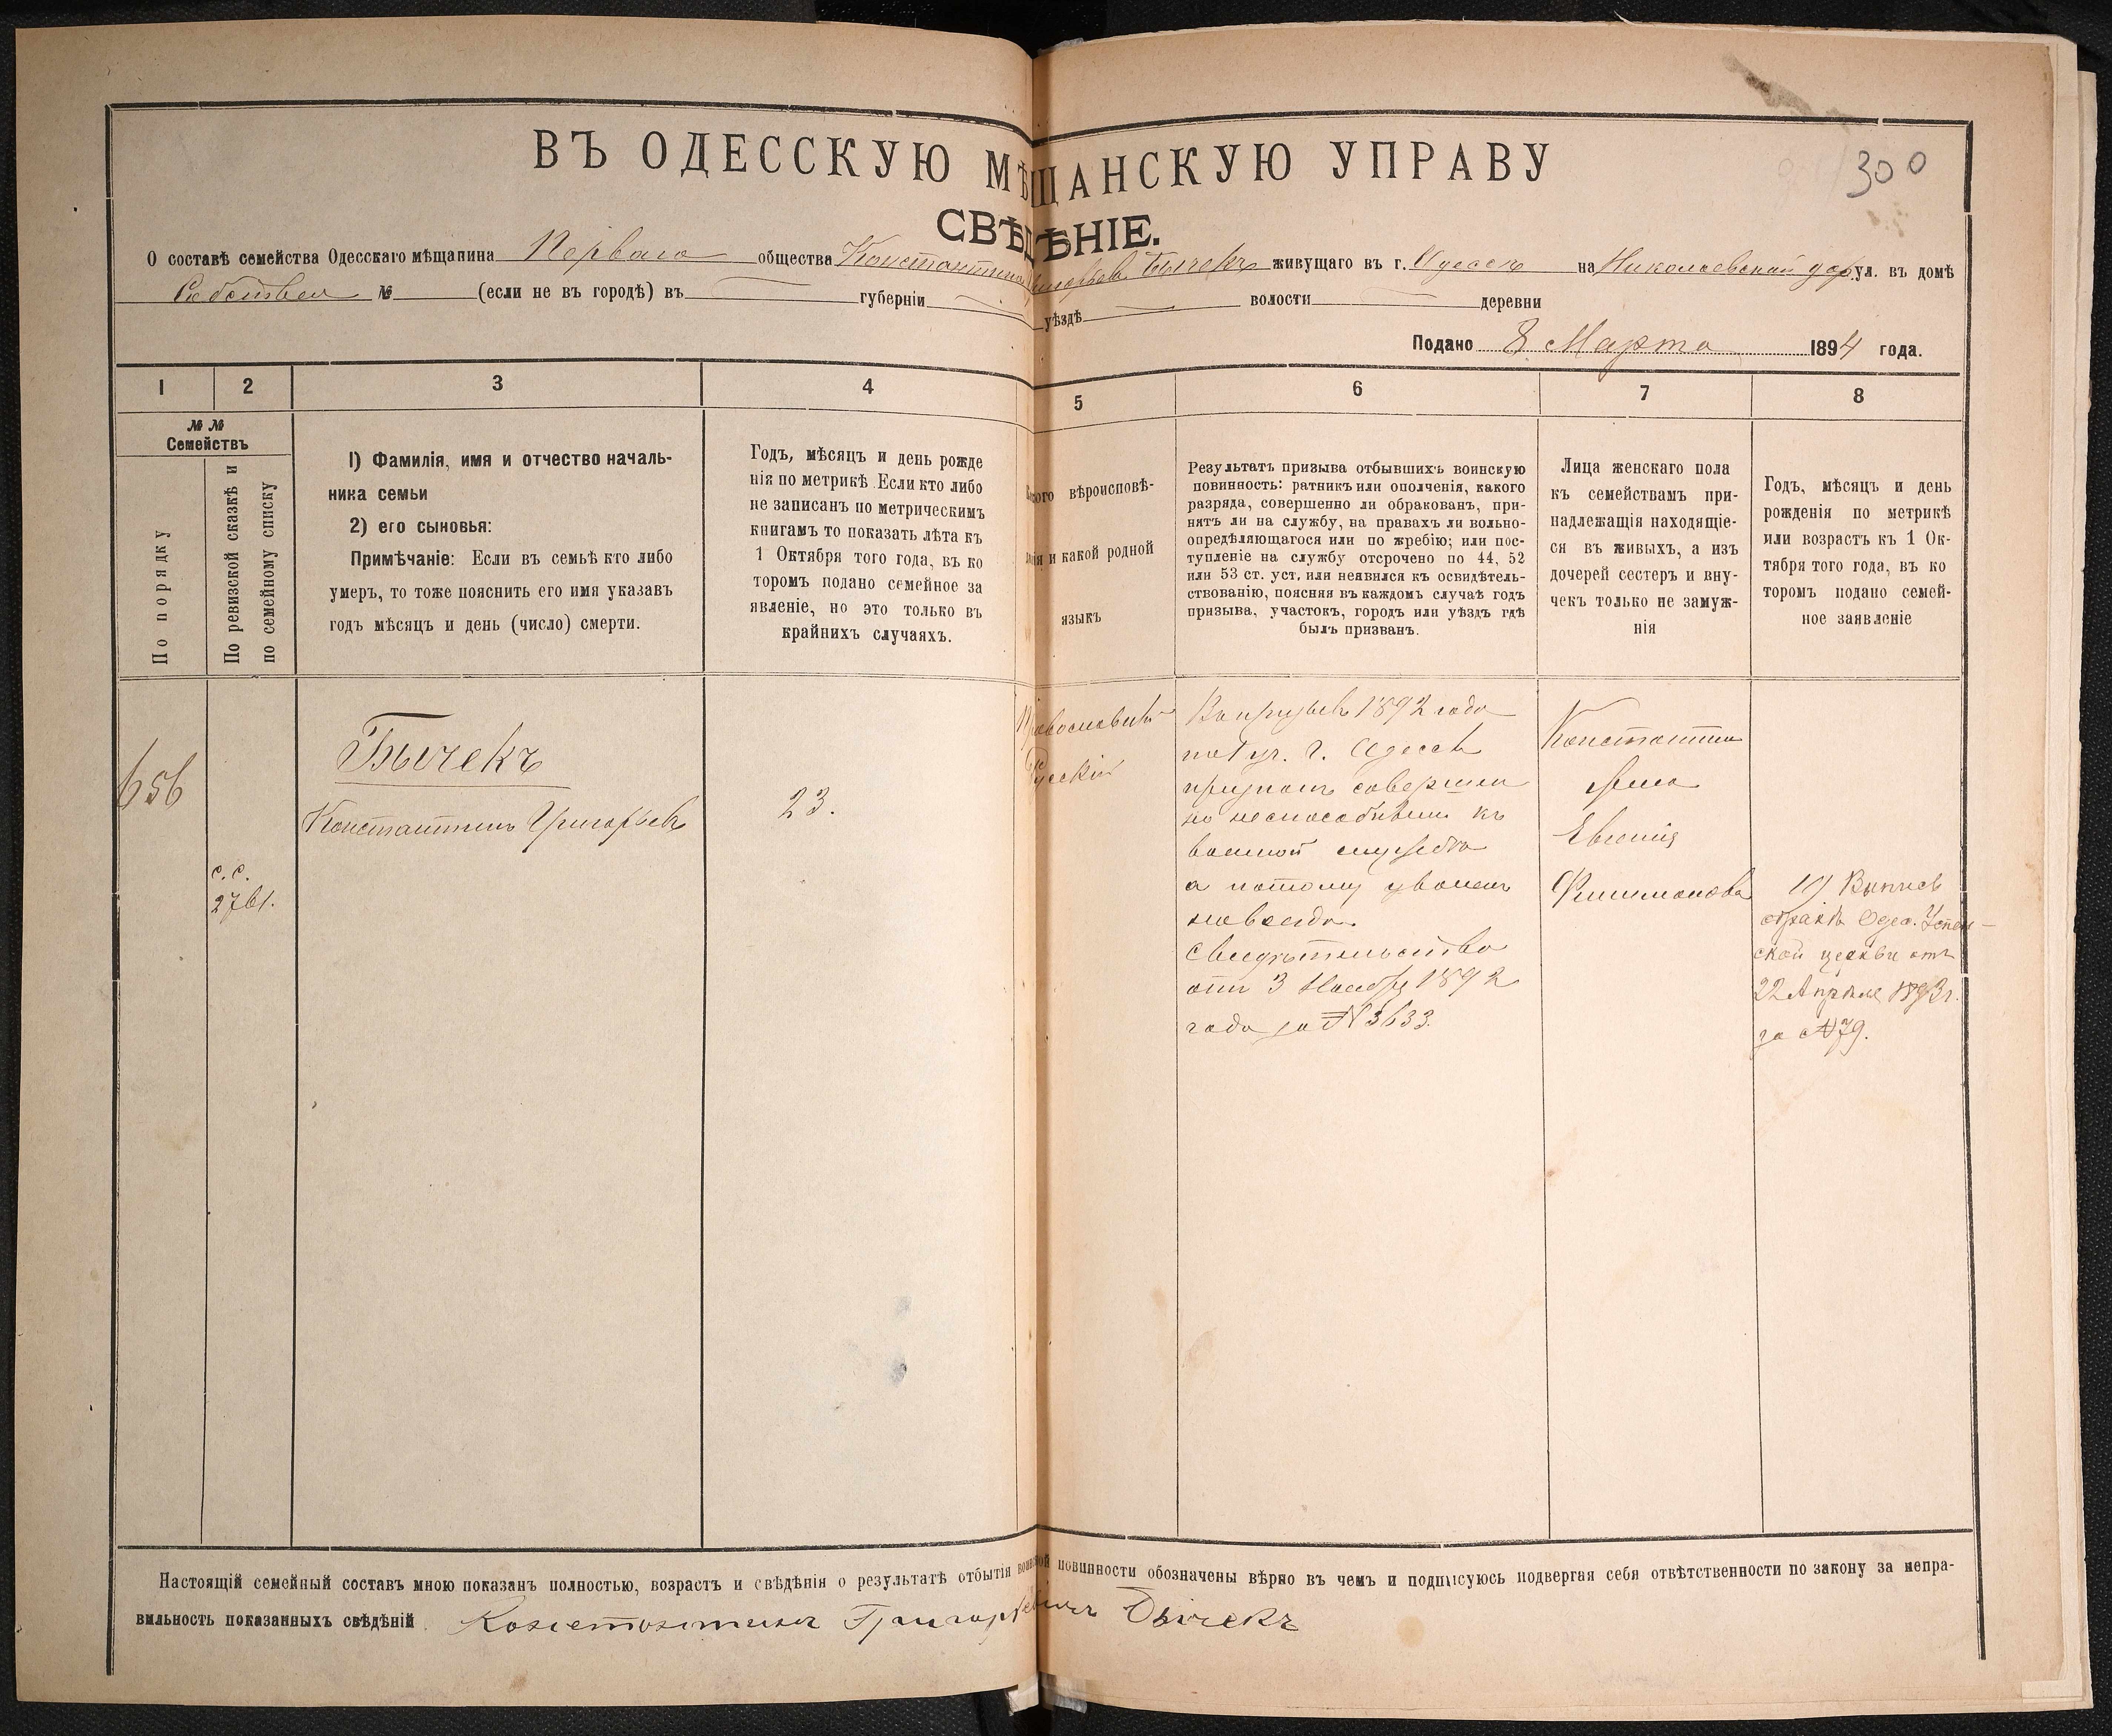 300
ВЪ ОДЕССКУЮ МѢЩАНСКУЮ УПРАВУ
СВѢДѢНІЕ.
О составѣ семейства Одесскаго мѣщанина Перваго общества Константина Григорьева Бычекъ живущаго въ г. Одессѣ на Николаевской дор. ул. въ домѣ
Собствен № (если не въ городѣ) въ губерніи уѣздѣ волости деревни
Подано 8 Марта 1894 года.
1 2 3 4 5 6 7 8
№ №
Семействъ
По порядку
По ревизской сказкѣ и
по семейному списку
1) Фамилія, имя и отчество началь-
ника семьи
2) его сыновья:
Примѣчаніе: Если въ семьѣ кто либо
умеръ, то тоже пояснить его имя указавъ
годъ мѣсяцъ и день (число) смерти.
Годъ, мѣсяцъ и день рожде
нія по метрикѣ. Если кто либо
не записанъ по метрическимъ
книгамъ то показать лѣта къ
1 Октября того года, въ ко
торомъ подано семейное за
явленіе, но это только въ
крайнихъ случаяхъ.
Какого вѣроисповѣ-
данія и какой родной
языкъ
Результатъ призыва отбывшихъ воинскую
повинность: ратникъ или ополченія, какого
разряда, совершенно ли обракованъ, при-
нятъ ли на службу, на правахъ ли вольно-
опредѣляющагося или по жребію; или пос-
тупленіе на службу отсрочено по 44, 52
или 53 ст. уст. или неявился къ освидѣтель-
ствованію, поясняя въ каждомъ случаѣ годъ
призыва, участокъ, городъ или уѣздъ гдѣ
былъ призванъ.
Лица женскаго пола
къ семействамъ при-
надлежащія находящіе-
ся въ живыхъ, а изъ
дочерей сестеръ и вну-
чекъ только не замуж-
нія
Годъ, мѣсяцъ и день
рожденія по метрикѣ
или возрастъ къ 1 Ок-
тября того года, въ ко
торомъ подано семей-
ное заявленіе
656
с. с.
2761.
Бычекъ
Константинъ Григорьевъ
23.
Православный
Русскій
Въ призывъ 1892 года
по 1 уч. г. Одессѣ
признанъ совершен
но неспособнымъ къ
военной службѣ
а потому уволенъ
навсегда.
Свидѣтельство
отъ 3 Ноября 1892
года за № 3633.
Константина
жена
Евгенія
Филимонова
19) Выпись
о бракѣ Одес. Успен-
ской церкви отъ
22 Апрѣля 1893 г.
за № 79.
Настоящій семейный составъ мною показанъ полностью, возрастъ и свѣдѣнія о результатѣ отбытія воинской повинности обозначены вѣрно въ чемъ и подписуюсь подвергая себя отвѣтственности по закону за непра-
вильность показанныхъ свѣдѣній. Константинъ Григорьевичъ Бычекъ